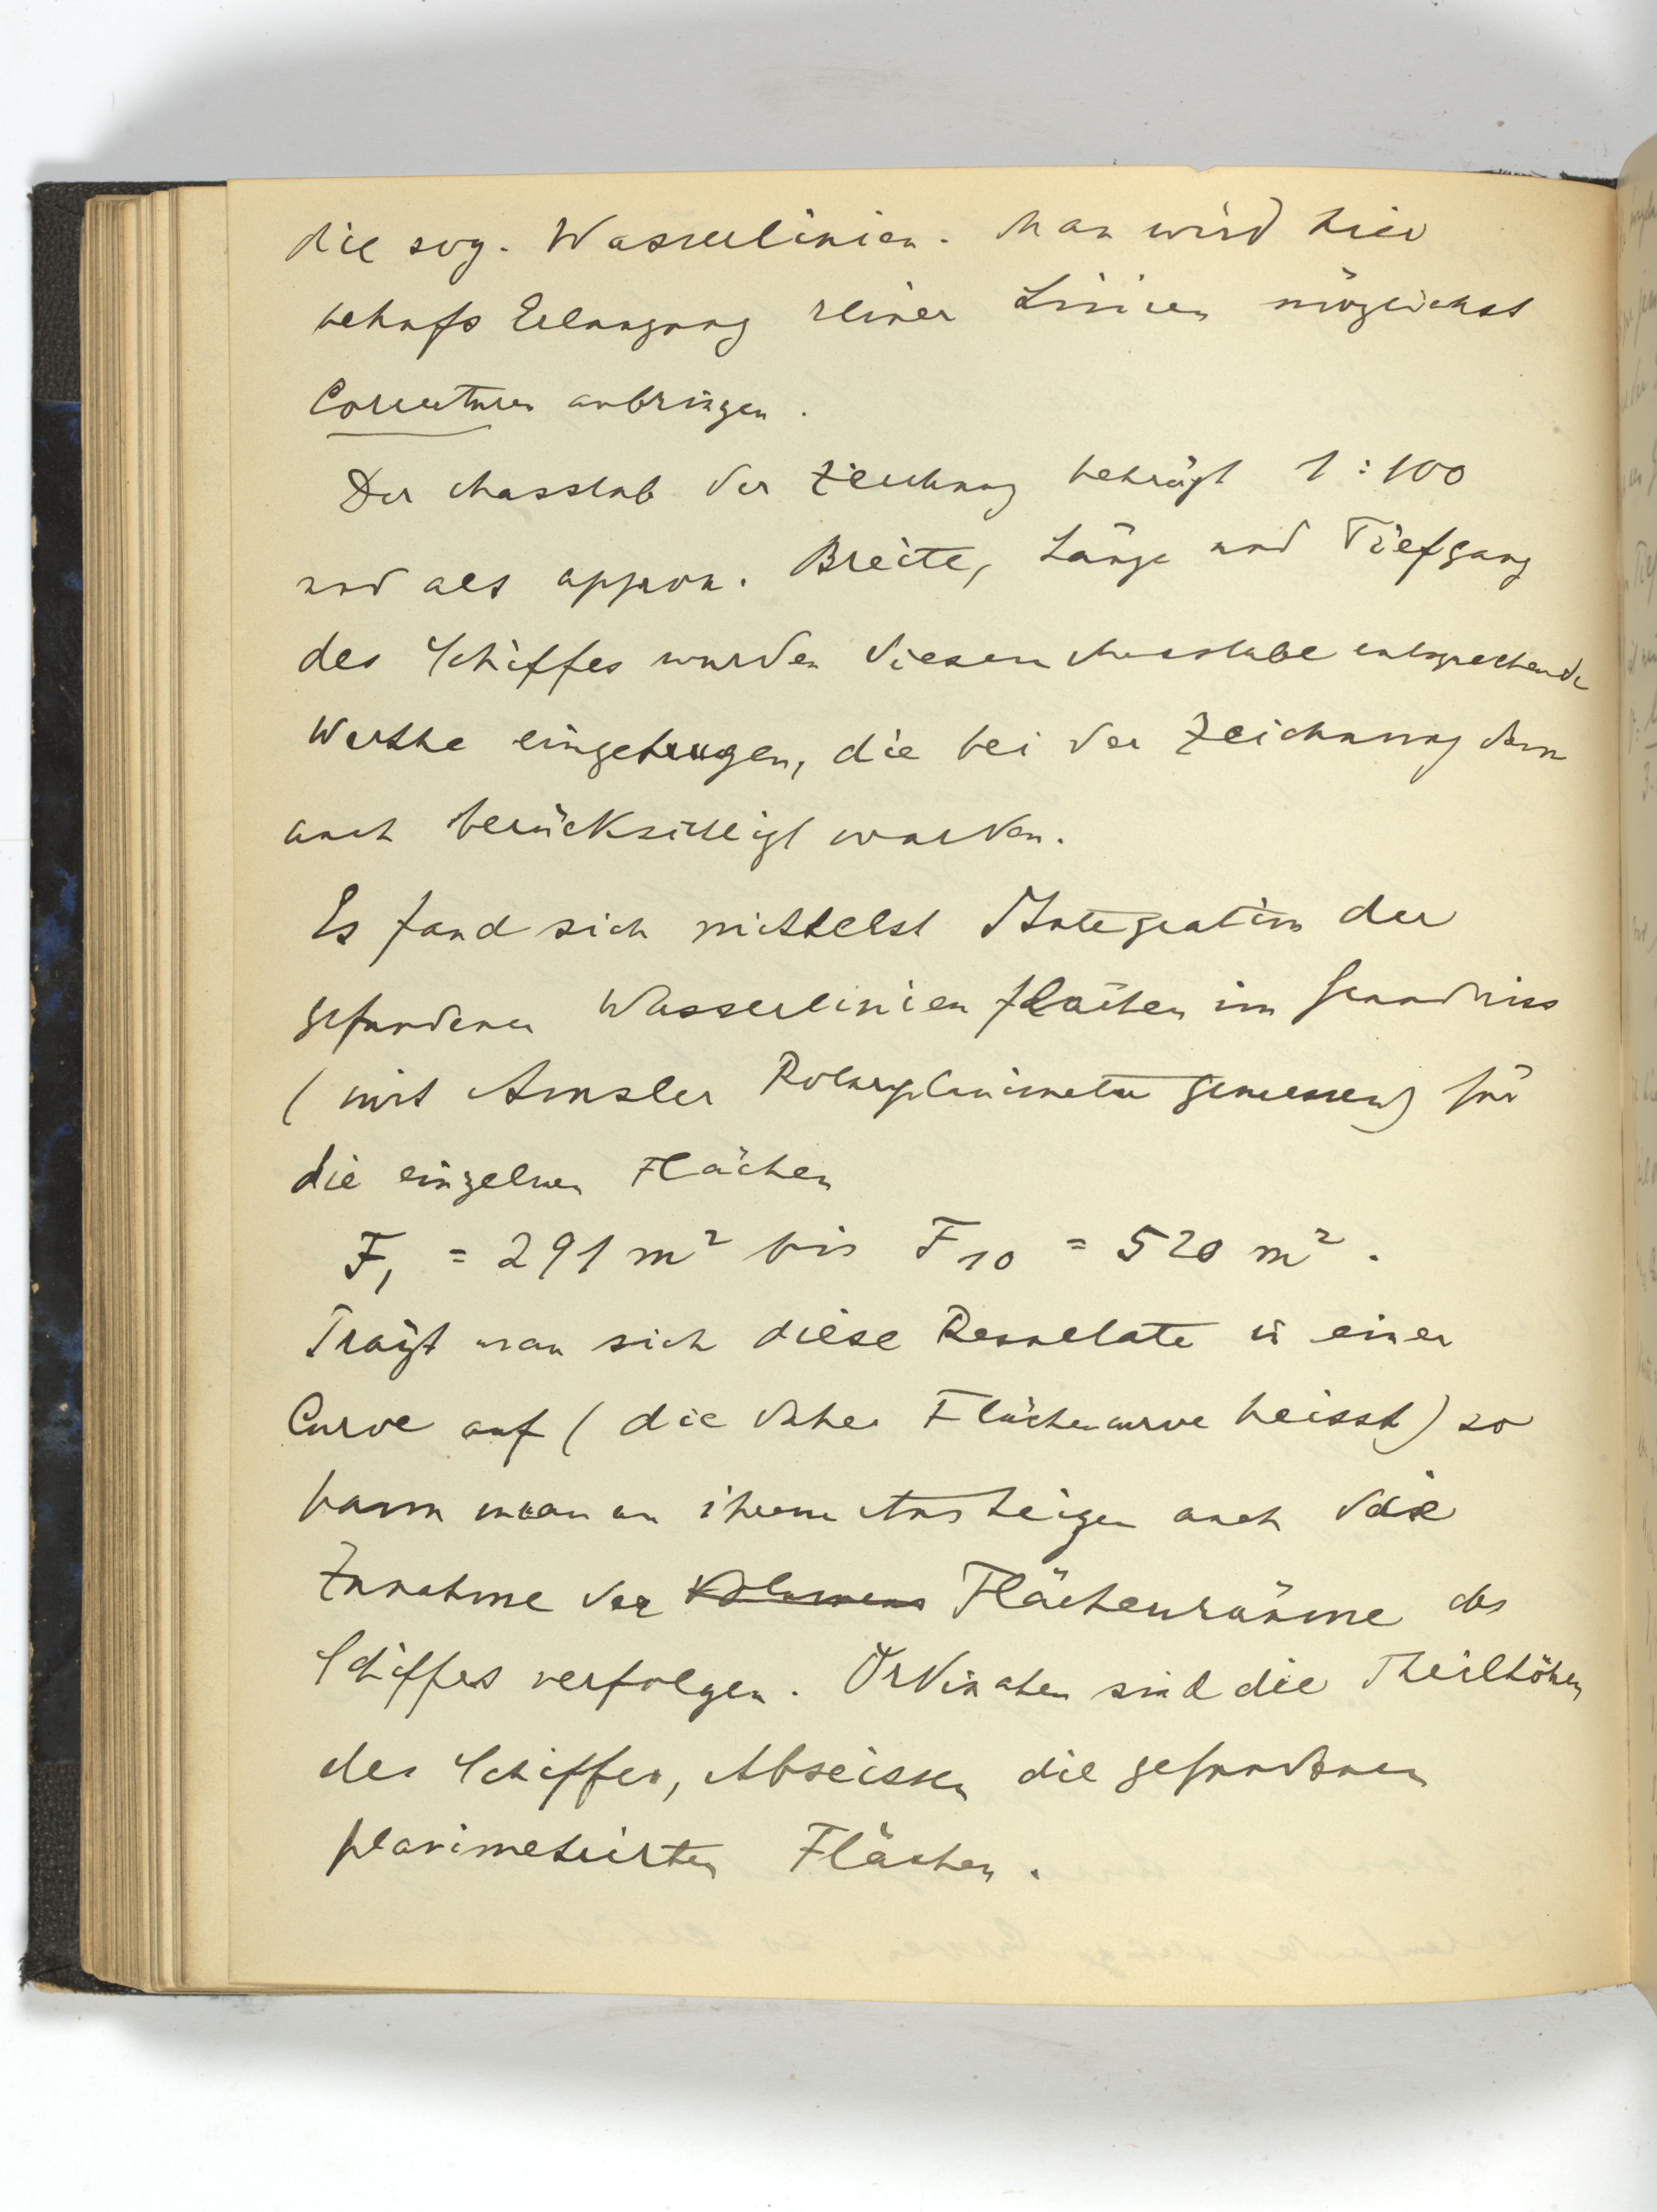 die sog. Wasserlinien. Man wird hier
behufs Erlangung reiner Linien möglichst
Correcturen anbringen.
Der Massstab der Zeichnung beträgt 1:100
und als approx. Breite, Länge und Tiefgang
des Schiffes wurden diesem Massstabe entsprechende
Werthe eingetragen, die bei der Zeichnung dann
auch berücksichtigt wurden.
Es fand sich mittelst Integration der
gefundenen Wasserlinienflächen im Grundriss
(mit Amsler Polarplanimeter gemessen) für
die einzelnen Flächen
F1 = 291 m² bis F10 = 520 m².
Trägt man sich diese Resultate in einer
Curve auf (die daher Flächencurve heisst) so
kann man an ihrem Ansteigen auch die
Zunahme der Volumens Flächenräume des
Schiffes verfolgen. Ordinaten sind die Theilhöhen
des Schiffes, Abscissen die gefundenen
planimetrirten Flächen.